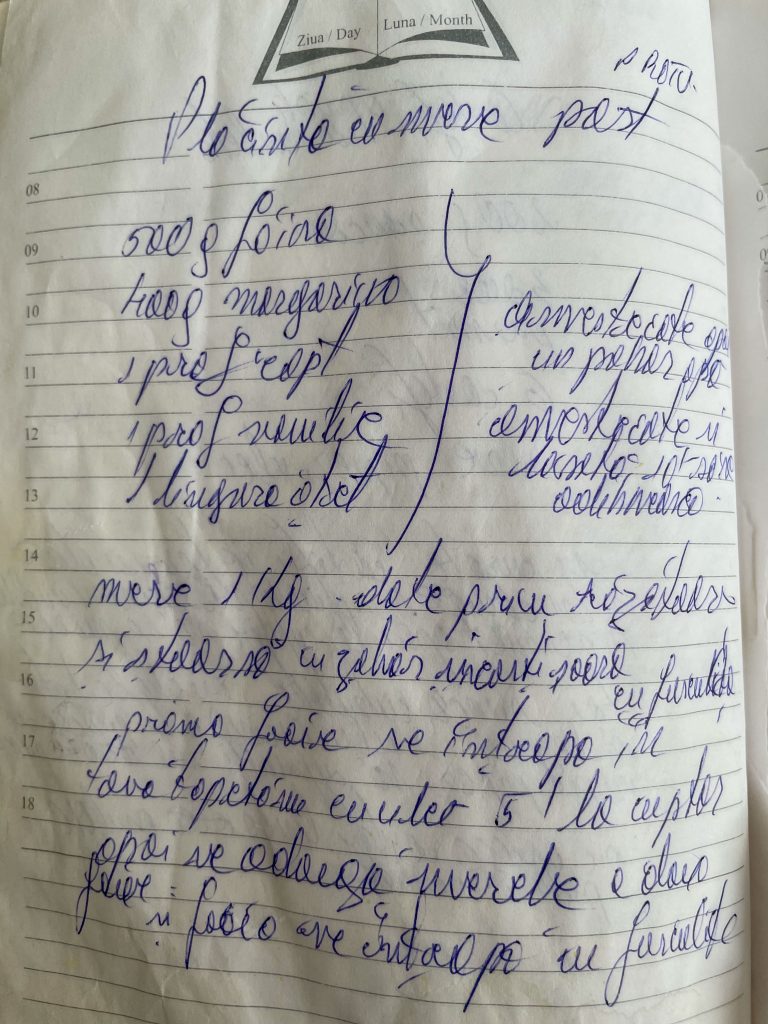 Ziua / Day Luna / Month
Plăcintă cu mere post
08
09 500g făină
10 400g margarină
11 1 praf copt
12 1 praf vanilie
13 1 lingură oțet
amestecate apoi
un pahar apă
amestecate și
lăsată 10
odihnească.
14
mere 1 Kg date prin răzătoare
15
și stoarsă cu zahăr
16
cu furculița
prima foaie se înțeapă în
17
tavă tapetăm 5' la cuptor
18
apoi se adaugă merele a doua
foaie
și foaia se înțeapă cu furculița